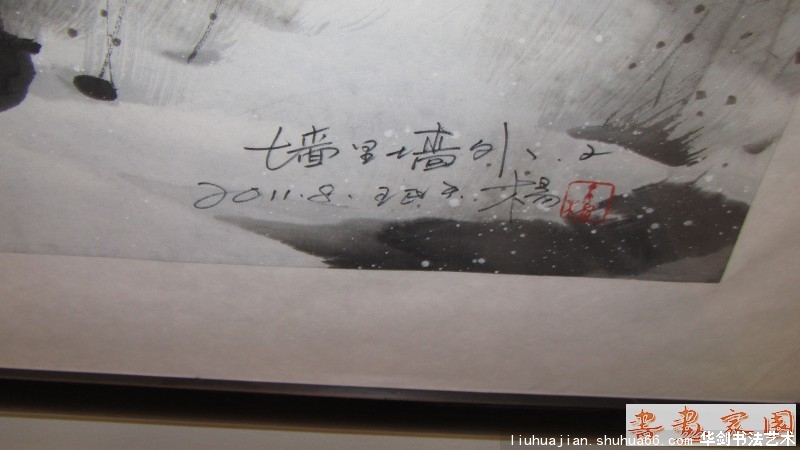 墙里墙外、.2
2011.8. 杨
書畫家園
liuhuajian.shuhua66.com 华剑书法艺术